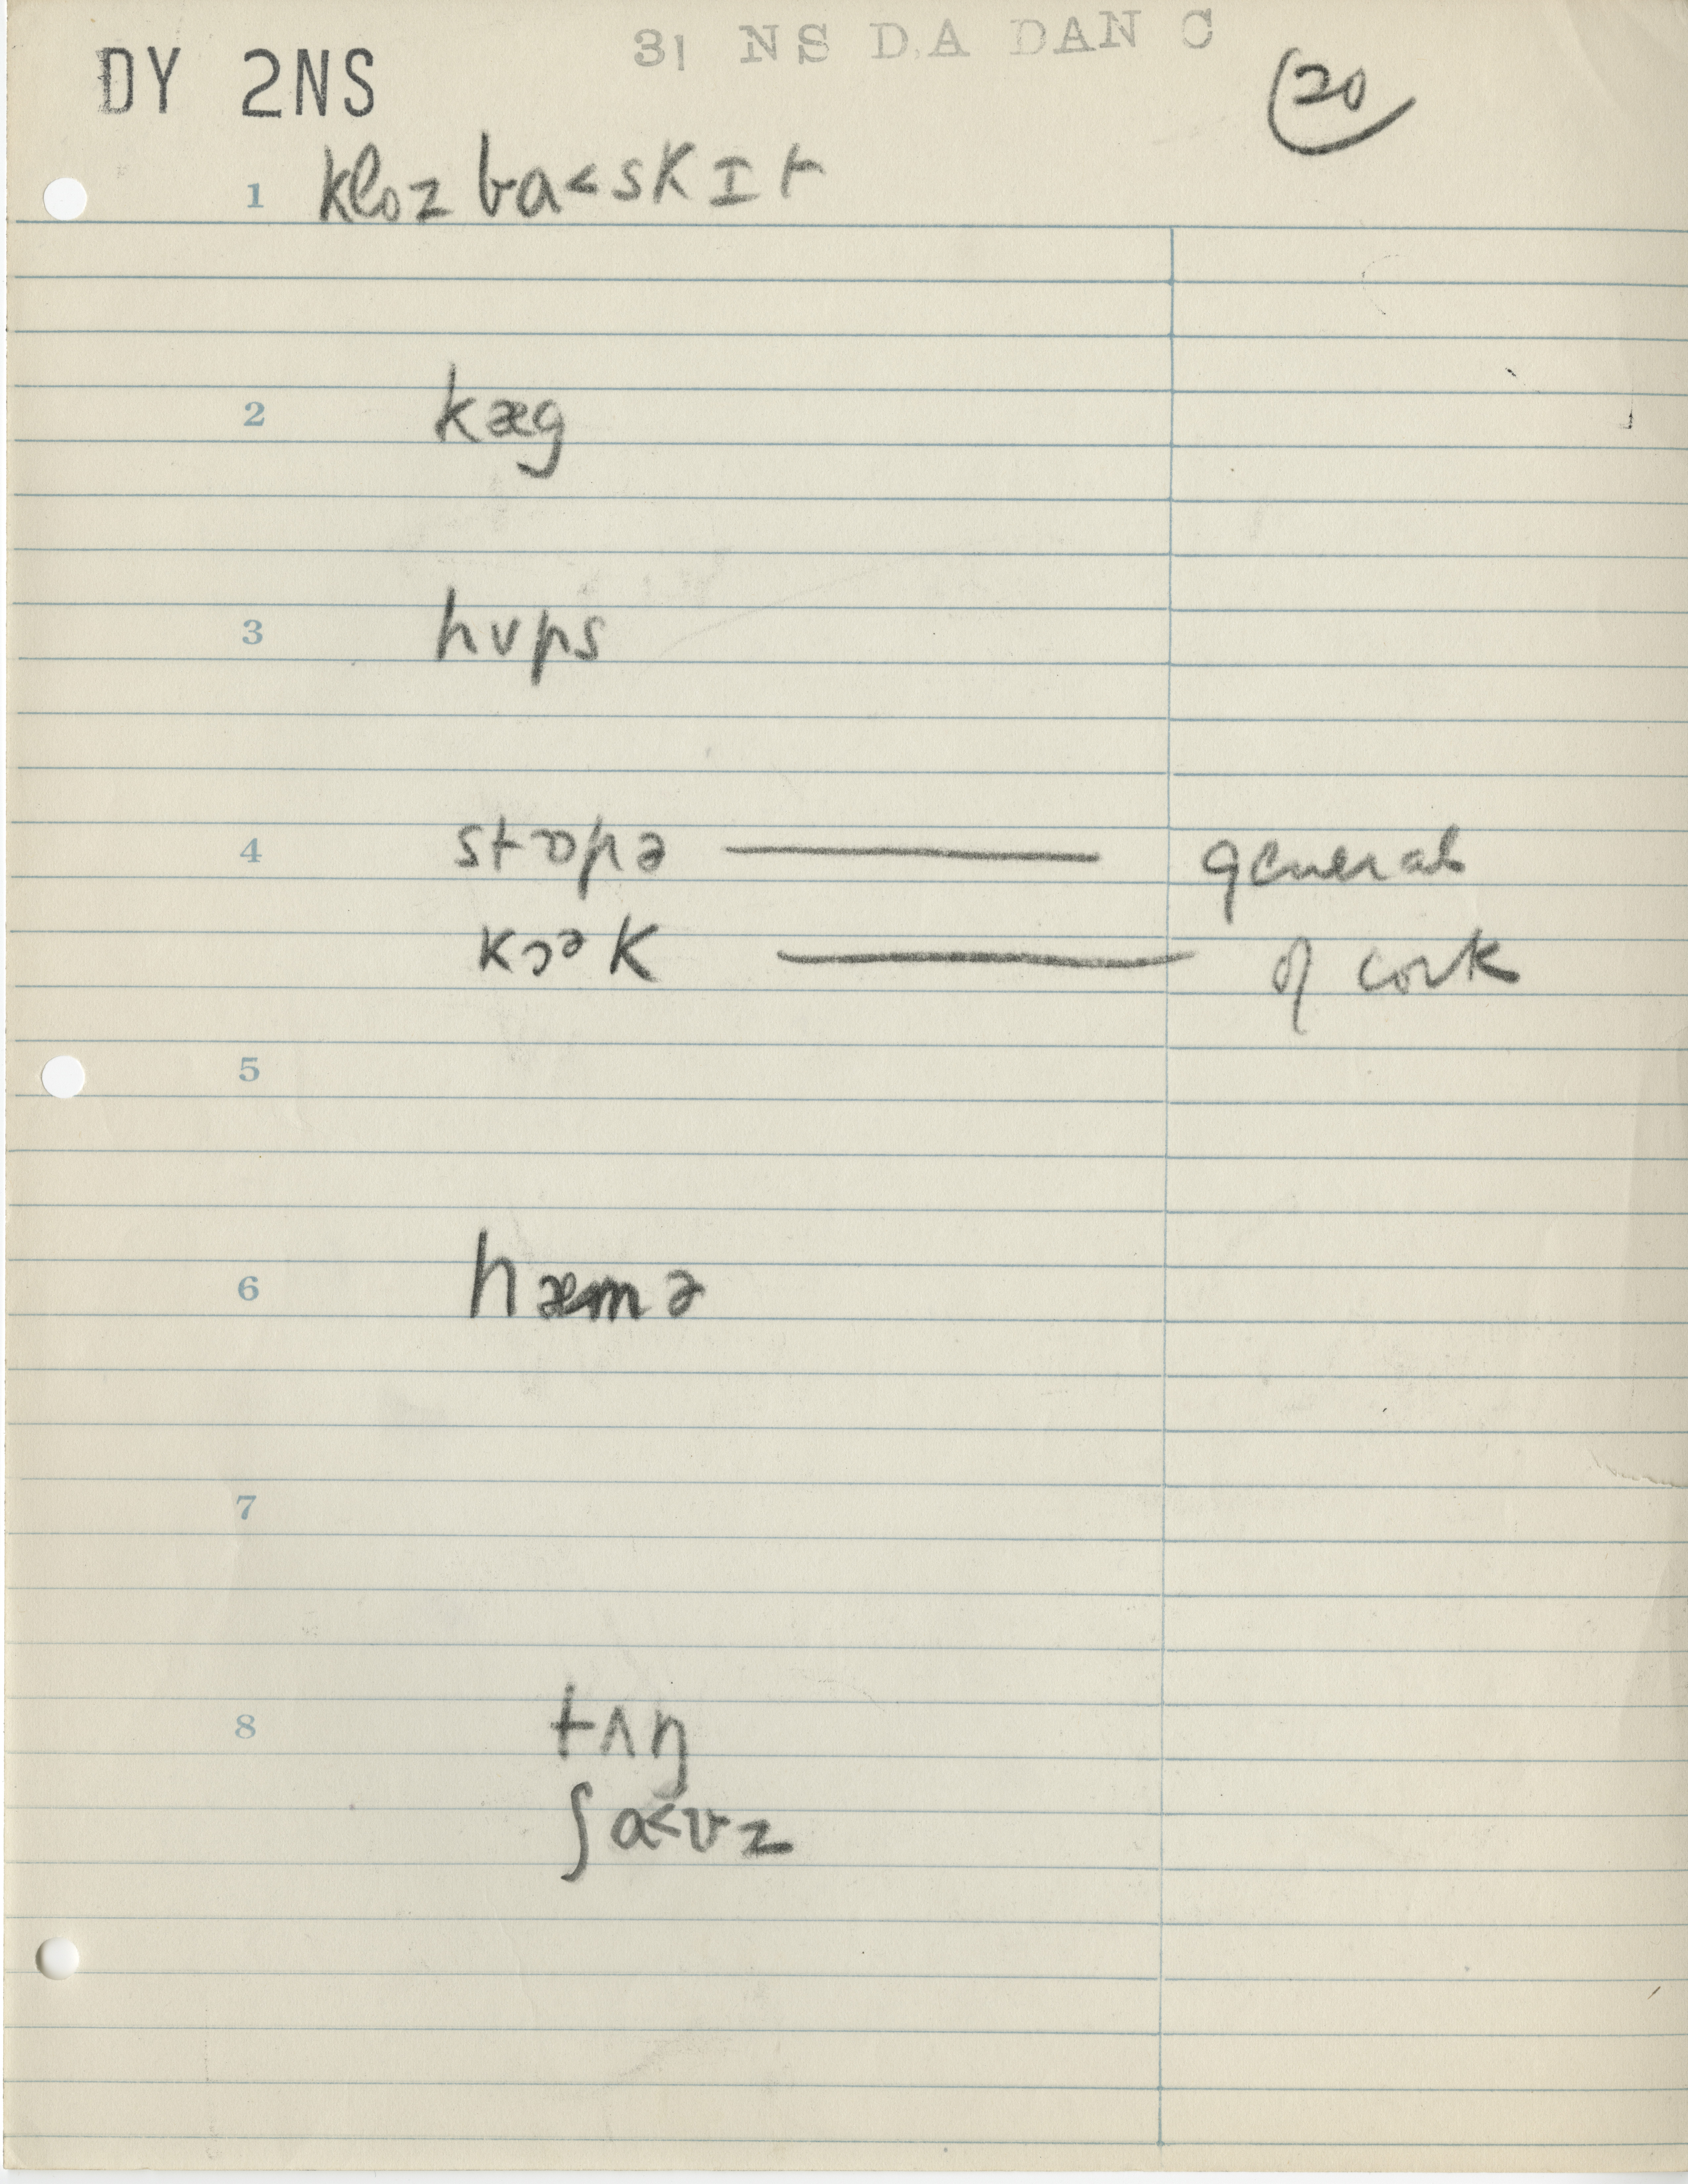 31 NS DA DAN C
DY 2NS
20
1 kloz ba<skɪt
2 kæg
3 hʊps
4 stɒpə — general
kɔək — of cork
5
6 hæmə
7
8 tʌŋ
ʃa<vz